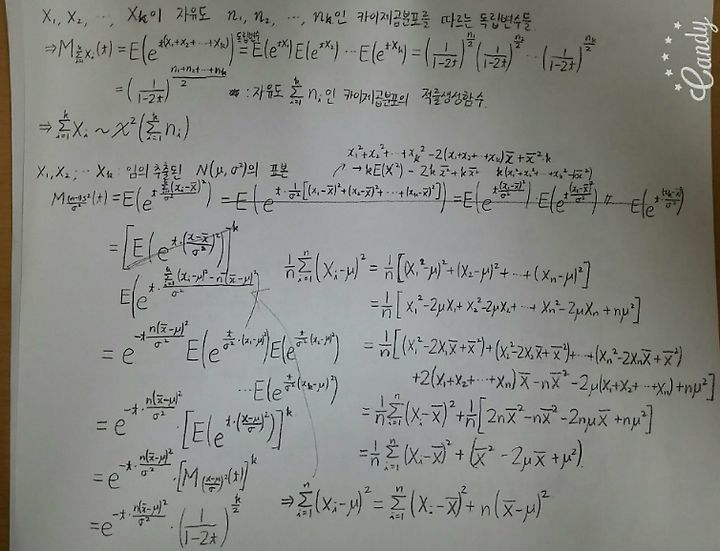 X₁, X₂, ⋯, Xₖ이 자유도 n₁, n₂, ⋯, nₖ인 카이제곱분포를 따르는 독립변수들
Candy
⇒ M_{Σ_{i=1}^{k} Xᵢ}(t) = E(e^{t(X₁+X₂+⋯+Xₖ)}) = E(e^{tX₁})E(e^{tX₂})⋯E(e^{tXₖ}) = (1/(1-2t))^{n₁/2} (1/(1-2t))^{n₂/2} ⋯ (1/(1-2t))^{nₖ/2}
독립변수
= (1/(1-2t))^{(n₁+n₂+⋯+nₖ)/2} : 자유도 Σ_{i=1}^{k} nᵢ인 카이제곱분포의 적률생성함수.
⇒ Σ_{i=1}^{k} Xᵢ ~ χ²(Σ_{i=1}^{k} nᵢ)
X₁²+X₂²+⋯+Xₖ²-2(X₁+X₂+⋯+Xₖ)X̄+X̄²·k
X₁, X₂, ⋯ Xₖ : 임의 추출된 N(μ, σ²)의 표본
→ kE(X²) - 2kX̄ + kX̄
M_{(n-1)S²/σ²}(t) = E(e^{t Σ(Xᵢ-X̄)²/σ²}) = E(e^{t·1/σ²[(X₁-X̄)²+(X₂-X̄)²+⋯+(Xₖ-X̄)²]})
= [E(e^{t·(X-X̄)²/σ²})]^k
E(e^{t·(Σ_{i=1}^{k}(Xᵢ-μ)²-n(X̄-μ)²)/σ²})
= e^{-t·n(X̄-μ)²/σ²} E(e^{t/σ²·(X₁-μ)²})E(e^{t/σ²(X₂-μ)²})
⋯E(e^{t/σ²(Xₖ-μ)²})
= e^{-t·n(X̄-μ)²/σ²} · [E(e^{t·((X-μ)/σ)²})]^k
= e^{-t·n(X̄-μ)²/σ²} · [M_{((X-μ)/σ)²}(t)]^k
= e^{-t·n(X̄-μ)²/σ²} · (1/(1-2t))^{k/2}
1/n Σ_{i=1}^{n} (Xᵢ-μ)² = 1/n [(X₁-μ)²+(X₂-μ)²+⋯+(Xₙ-μ)²]
= 1/n [X₁²-2μX₁+X₂²-2μX₂+⋯+Xₙ²-2μXₙ+nμ²]
= 1/n [(X₁²-2X₁X̄+X̄²)+(X₂²-2X₂X̄+X̄²)+⋯+(Xₙ²-2XₙX̄+X̄²)
+2(X₁+X₂+⋯+Xₙ)X̄-nX̄²-2μ(X₁+X₂+⋯+Xₙ)+nμ²]
= 1/n Σ_{i=1}^{n} (Xᵢ-X̄)² + 1/n [2nX̄²-nX̄²-2nμX̄+nμ²]
= 1/n Σ_{i=1}^{n} (Xᵢ-X̄)² + (X̄²-2μX̄+μ²)
⇒ Σ_{i=1}^{n} (Xᵢ-μ)² = Σ_{i=1}^{n} (Xᵢ-X̄)² + n(X̄-μ)²